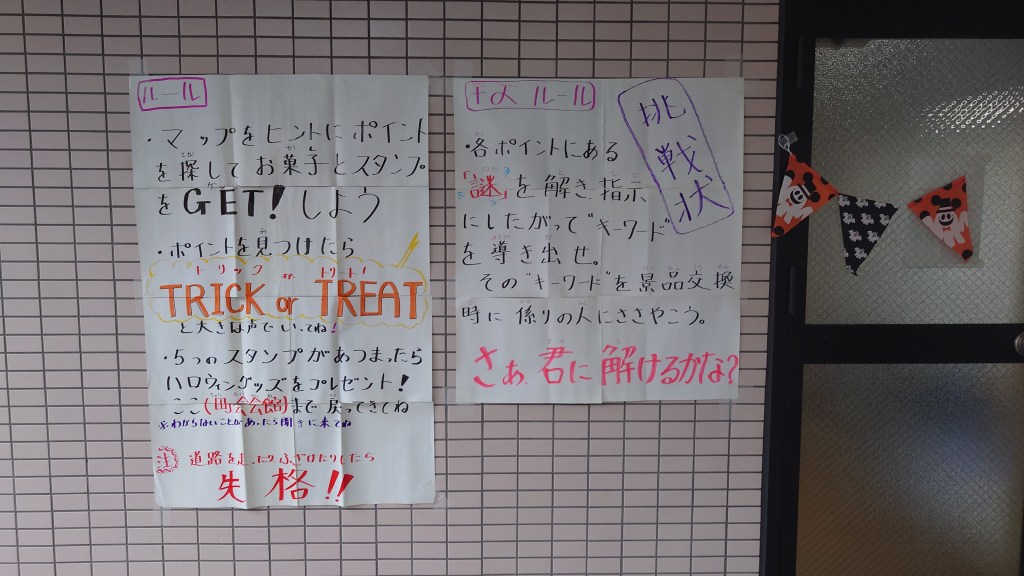 ルール
・マップをヒントにポイント
を探してお菓子とスタンプ
をGET!しよう
・ポイントを見つけたら
トリック オア トリート!
TRICK or TREAT
と大きな声でいってね!
・5つのスタンプがあつまったら
ハロウィングッズをプレゼント!
ここ(町会会館)まで戻ってきてね
※わからないことがあったら聞きに来てね
注 道路を走ったりふざけたりしたら
失格!!
大人ルール
挑戦状
・各ポイントにある
「謎」を解き、指示
にしたがって"キーワード"
を導き出せ。
その"キーワード"を景品交換
時に係りの人にささやこう。
さぁ、君に解けるかな?